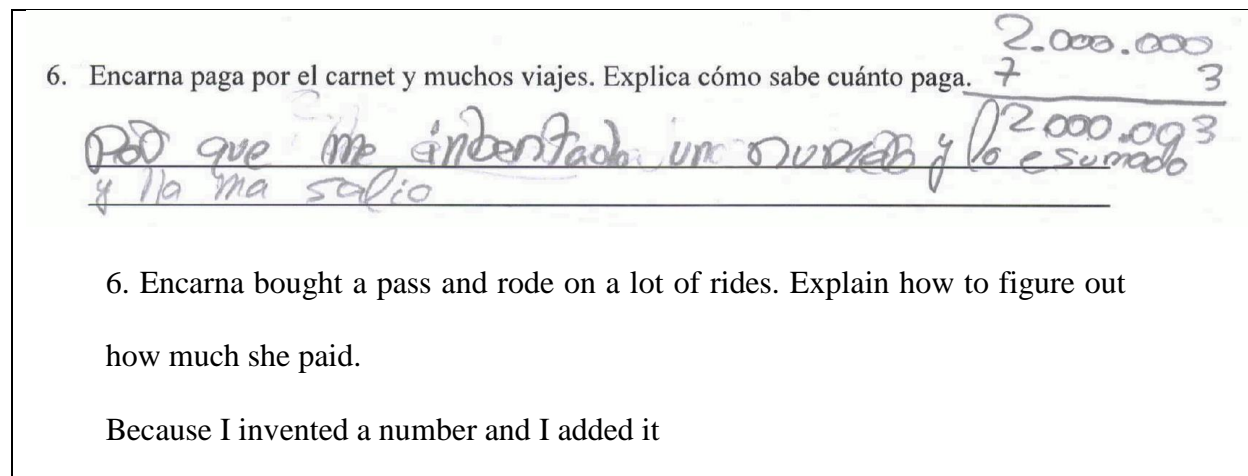 2.000.000
6. Encarna paga por el carnet y muchos viajes. Explica cómo sabe cuánto paga. + 3
2000.003
Por que me inbentado un numero y lo e sumado
y lla ma salio
6. Encarna bought a pass and rode on a lot of rides. Explain how to figure out
how much she paid.
Because I invented a number and I added it